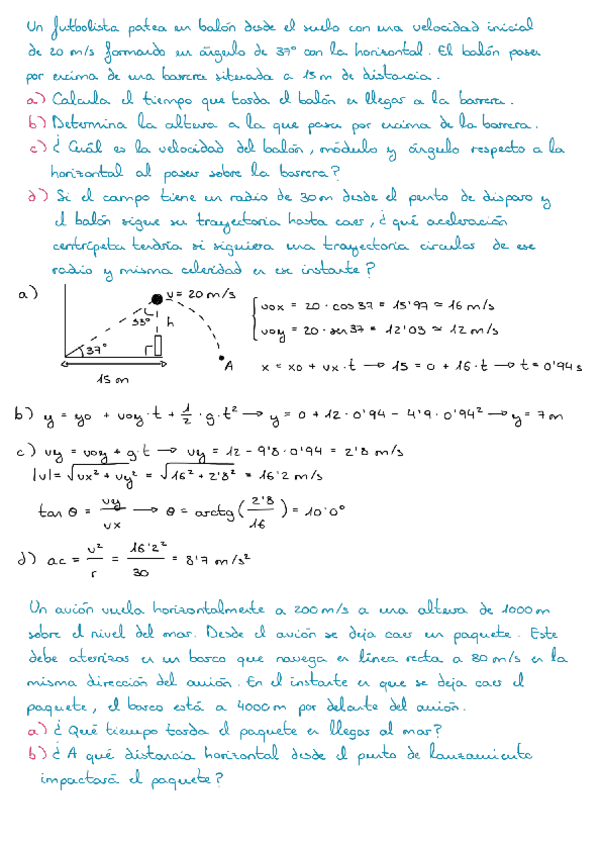 Un futbolista patea un balón desde el suelo con una velocidad inicial
de 20 m/s formando un ángulo de 37° con la horizontal. El balón pasa
por encima de una barrera situada a 15 m de distancia.
a) Calcula el tiempo que tarda el balón en llegar a la barrera.
b) Determina la altura a la que pasa por encima de la barrera.
c) ¿Cuál es la velocidad del balón, módulo y ángulo respecto a la
horizontal al pasar sobre la barrera?
d) Si el campo tiene un radio de 30 m desde el punto de disparo y
el balón sigue su trayectoria hasta caer, ¿qué aceleración
centrípeta tendría si siguiera una trayectoria circular de ese
radio y misma celeridad en ese instante?
a)
v = 20 m/s
53°
h
37°
A
15 m
vox = 20 · cos 37 = 15'97 ≃ 16 m/s
voy = 20 · sen 37 = 12'03 ≃ 12 m/s
x = xo + vx · t → 15 = 0 + 16 · t → t = 0'94 s
b) y = yo + voy · t + 1/2 · g · t² → y = 0 + 12 · 0'94 - 4'9 · 0'94² → y = 7 m
c) vy = voy + g · t → vy = 12 - 9'8 · 0'94 = 2'8 m/s
|v| = √vx² + vy² = √16² + 2'8² = 16'2 m/s
tan θ = vy/vx → θ = arctg (2'8/16) = 10'0°
d) ac = v²/r = 16'2²/30 = 8'7 m/s²
Un avión vuela horizontalmente a 200 m/s a una altura de 1000 m
sobre el nivel del mar. Desde el avión se deja caer un paquete. Este
debe aterrizar en un barco que navega en línea recta a 80 m/s en la
misma dirección del avión. En el instante en que se deja caer el
paquete, el barco está a 4000 m por delante del avión.
a) ¿Qué tiempo tarda el paquete en llegar al mar?
b) ¿A qué distancia horizontal desde el punto de lanzamiento
impactará el paquete?